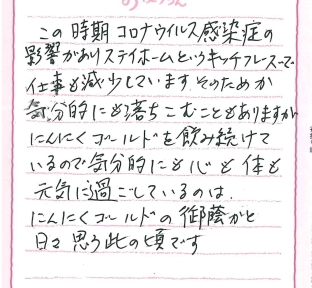 この時期コロナウイルス感染症の
影響がありステイホームというキャッチフレーズで
仕事も減少しています。そのためか
気分的にも落ちこむこともありますが
にんにくゴールドを飲み続けて
いるので気分的にも心も体も
元気に過ごしているのは、
にんにくゴールドの御蔭かと
日々思う此の頃です